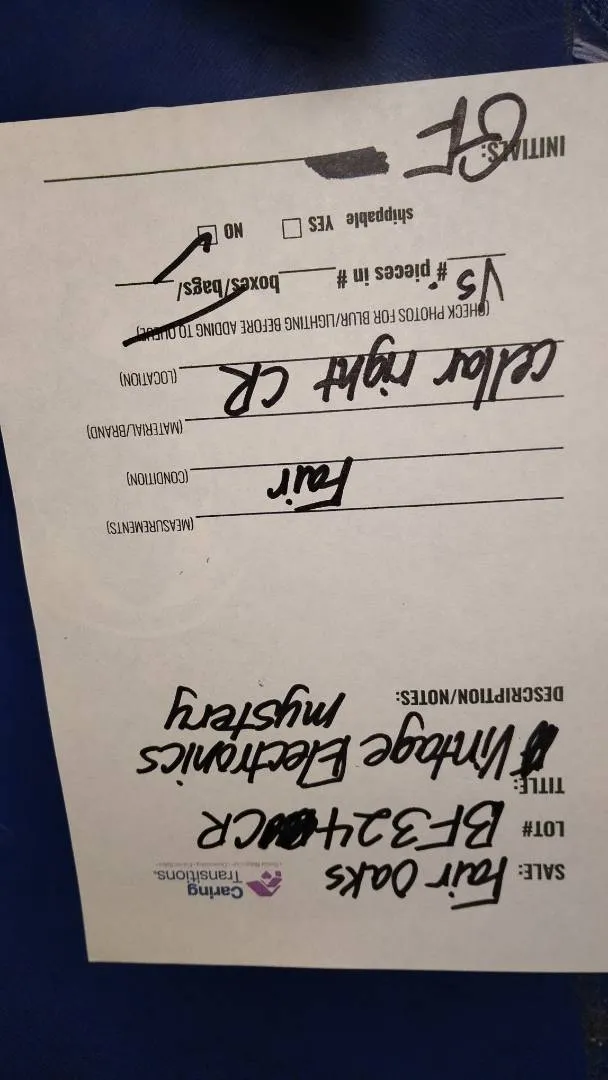 SALE: Fair Oaks
Caring
Transitions.
LOT# BF324 CR
TITLE: Vintage Electronics
mystery
DESCRIPTION/NOTES:
(MEASUREMENTS)
Fair (CONDITION)
(MATERIAL/BRAND)
cellar right CR (LOCATION)
(CHECK PHOTOS FOR BLUR/LIGHTING BEFORE ADDING TO QUEUE)
VS # pieces in # boxes/bags/
shippable YES NO
INITIALS: GF